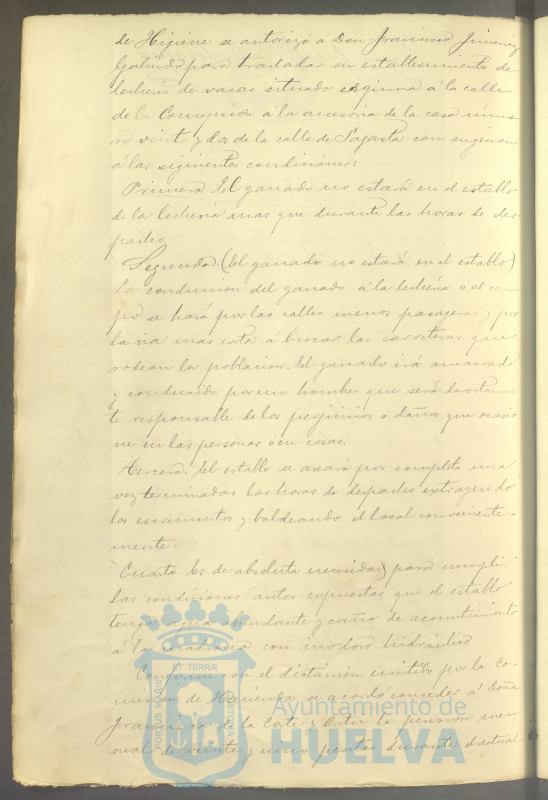 de Higiene se autorizó a Don Francisco Jimenez
Galindo para trasladar su establecimiento de
lecheria de vacas situado esquina á la calle
de la Concepción á la accesoria de la casa núme
ro veinte y dos de la calle de Sagasta con sugecion
á las siguientes condiciones:
Primera. El ganado no estará en el establo
de la lecheria mas que durante las horas de des-
pacho.
Segunda (El ganado no estará en el establo)
La conduccion del ganado á la lecheria o al cam
po se hará por las calles menos pasageras y por
la via mas corta á buscar las carreteras que
rodean la poblacion. El ganado irá amarrado
y conducido por un hombre que será directamen
te responsable de los perjuicios ó daños que ocasio
ne en las personas ó en cosas.
Tercera. El establo se aseará por completo una
vez terminadas las horas de despacho extrayendo
los escrementos y baldeando el local conveniente-
mente.
Cuarta. Es de absoluta necesidad para cumplir
las condiciones antes expuestas que el establo
tenga agua abundante y caño de acometimiento
á la con inodoro hidráulico
Conforme con el dictámen emitido por la Co-
mision de Hacienda se acordó conceder á Doña
Francisca de la Corte y Ortiz la pension men
sual de veinte y cinco pesetas durante el actual
PORTUS MARIS ET TERRÆ CUSTODIA
Ayuntamiento de
HUELVA